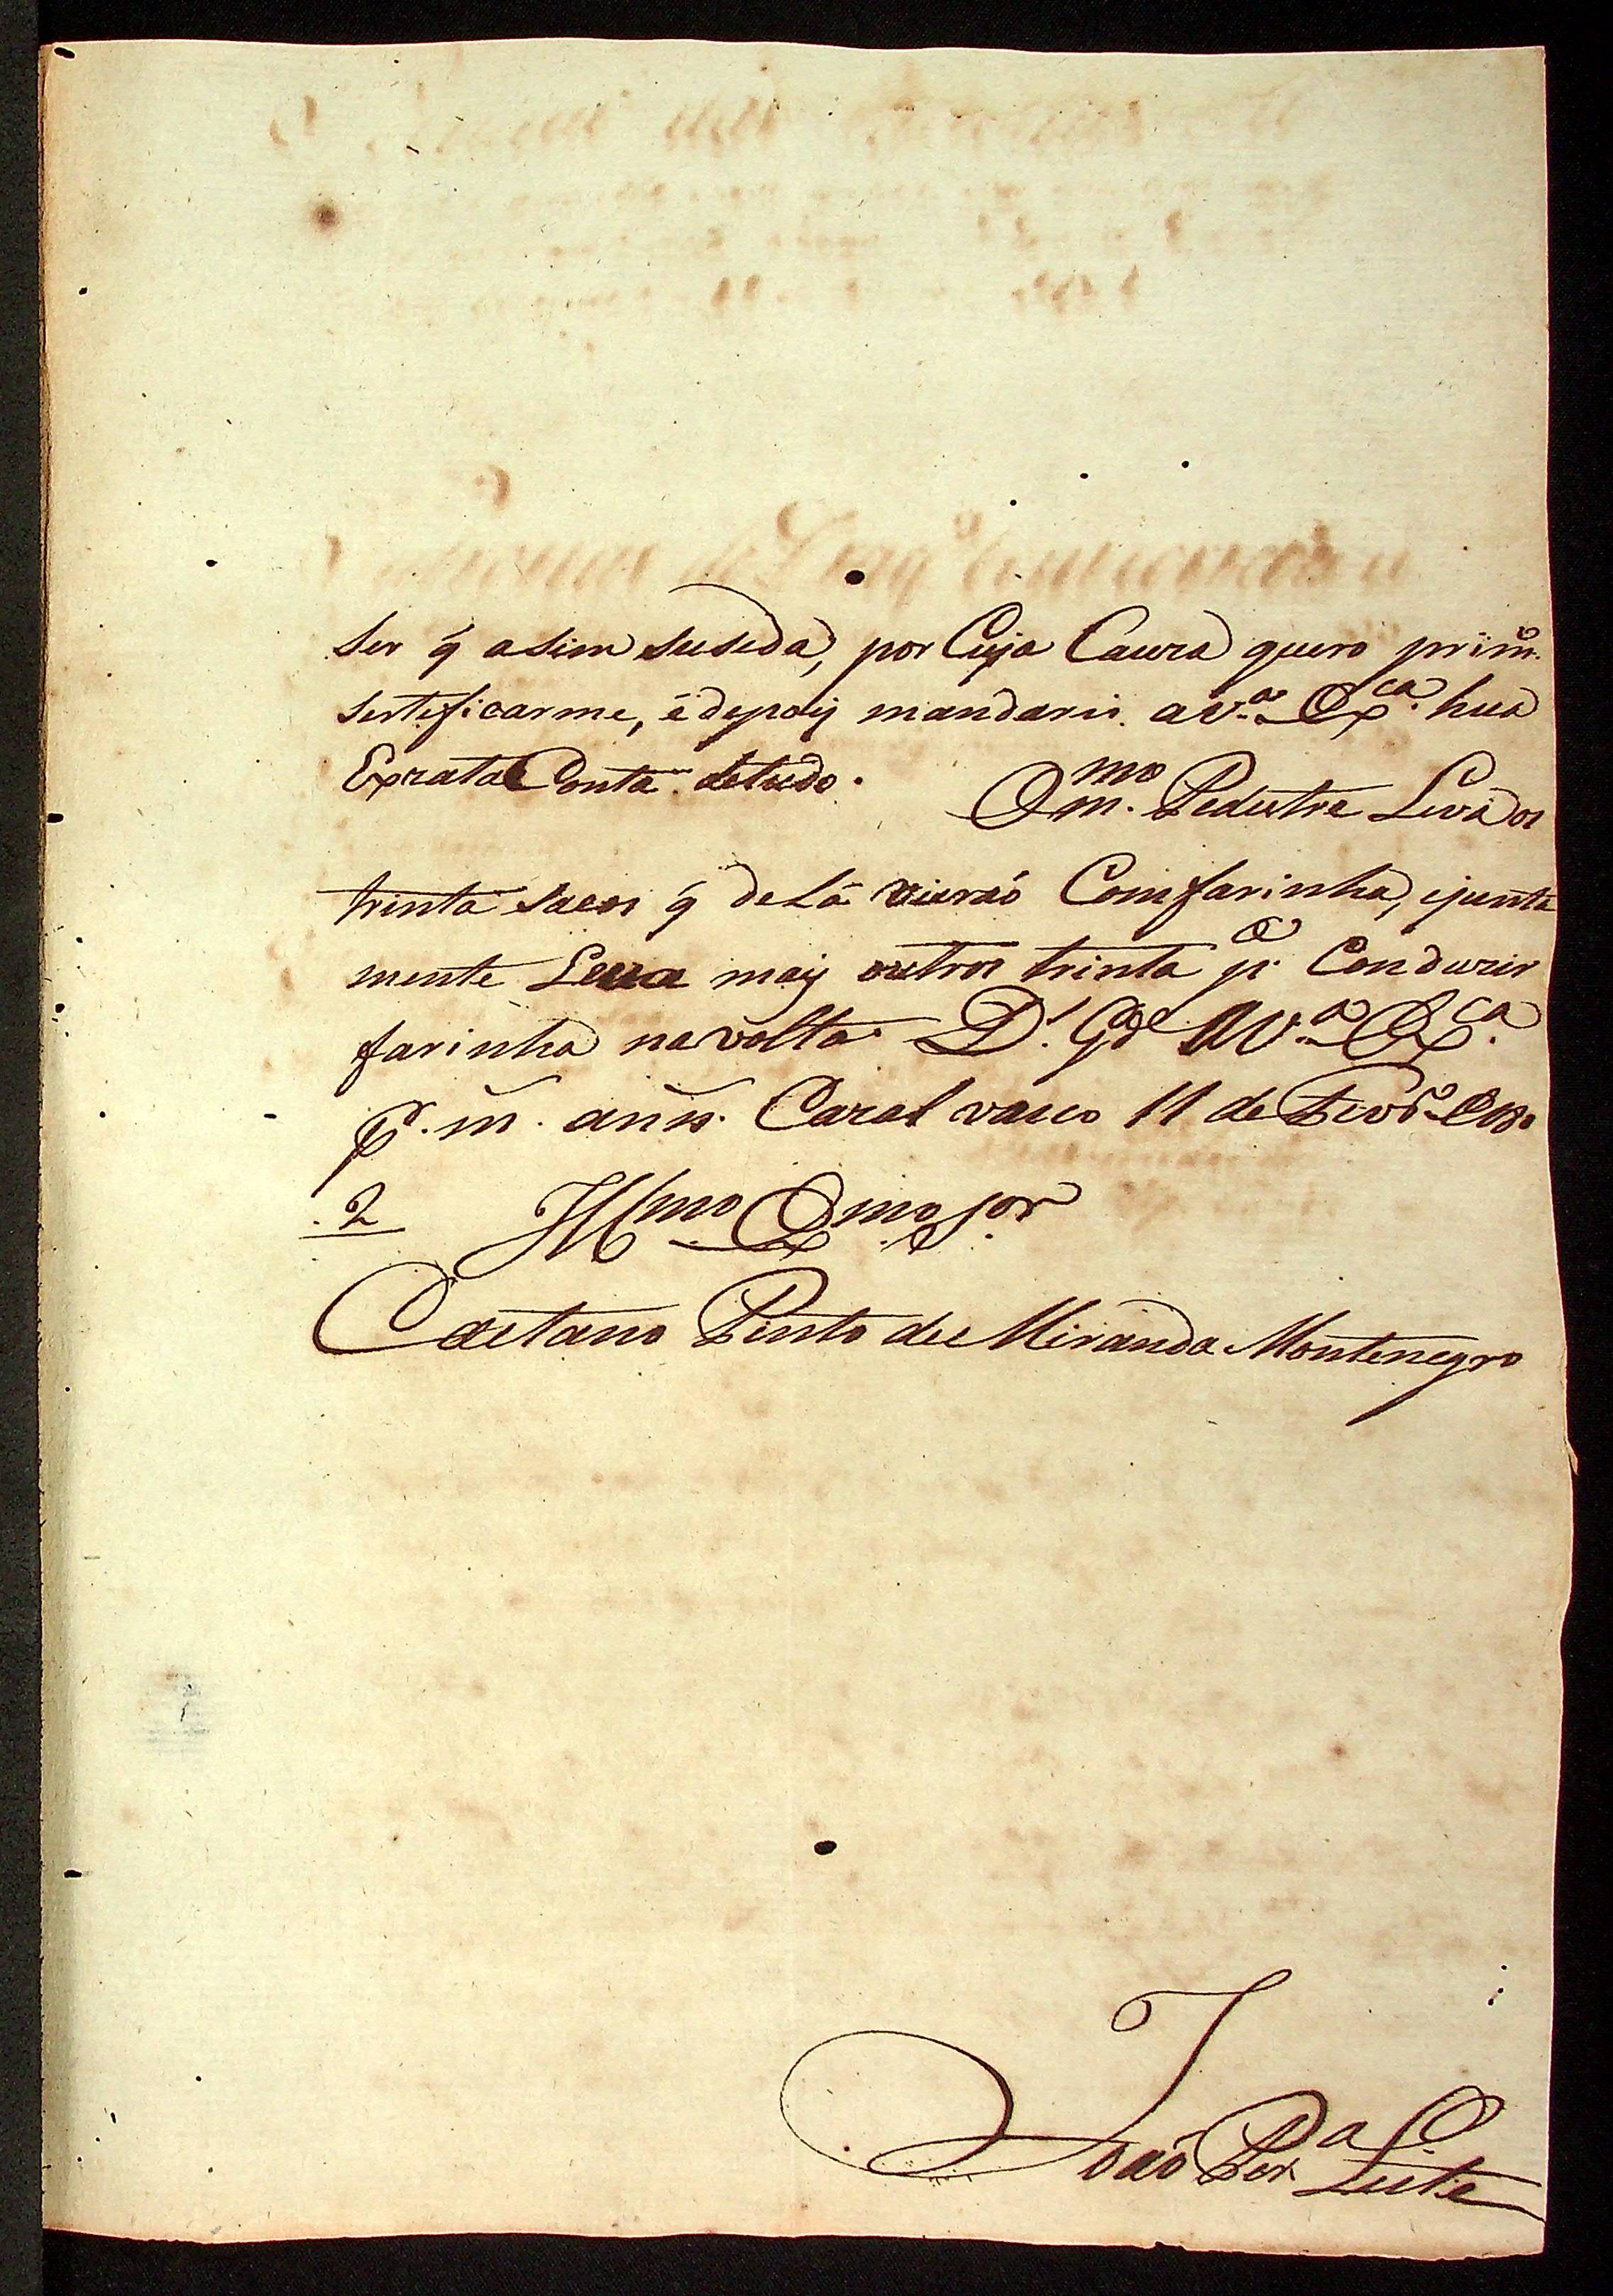 ser q̃ asim suseda, por Cuja Cauza quero prim.º
serteficarme, ë depois mandarei. a V.ª Ex.ca hua
Exzata Conta detudo. O m.mo Pedestre Leva os
trinta sacos q̃ de Lá vieraó Com farinha, ejunta
mente Leva mais outros trinta p.ª Conduzir
farinha na volta. D.s G.de A V.ª Ex.ca
P. m̃. añs. Cazal vasco 11 de Fevr.º de 180
.2 Ill.mo Ex.mo S.or
Caetano Pinto de Miranda Montenegro
Joaó Per.ª Leite